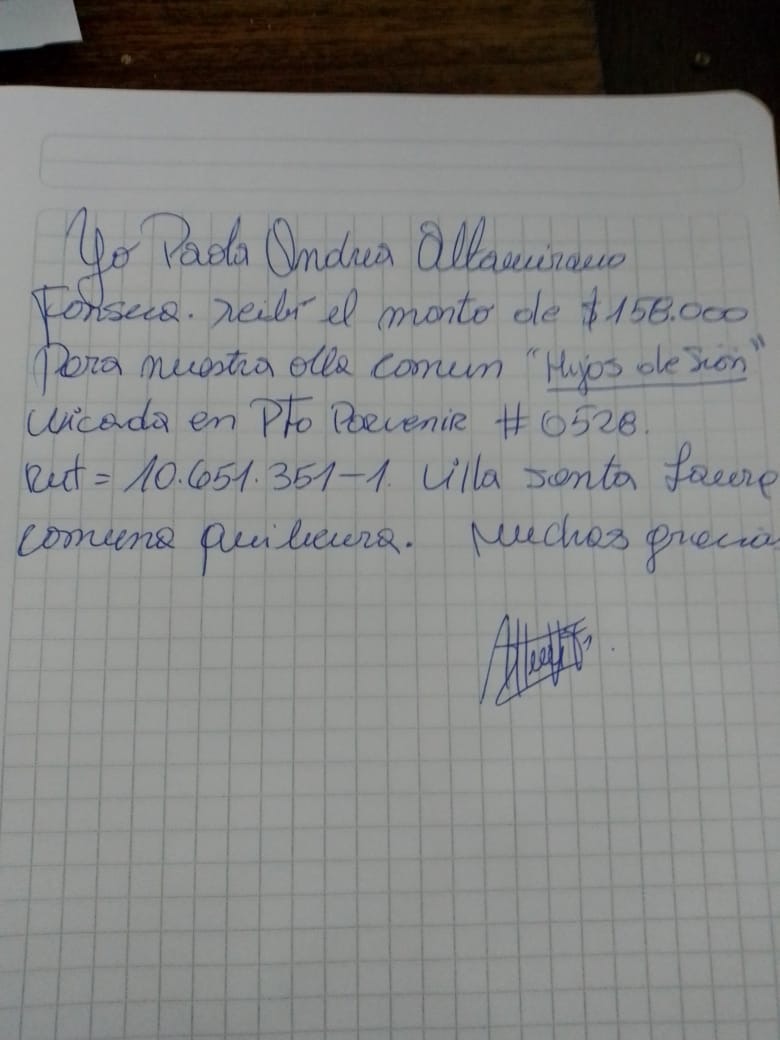 Yo Paola Andrea Altamirano
Fonseca. recibí el monto de $158.000
Para nuestra olla comun "Hijos de Sión"
Uicada en Pto Porvenir # 0528.
Rut = 10.651.351-1. Villa Santa Laura
comuna quilicura. Muchas gracia